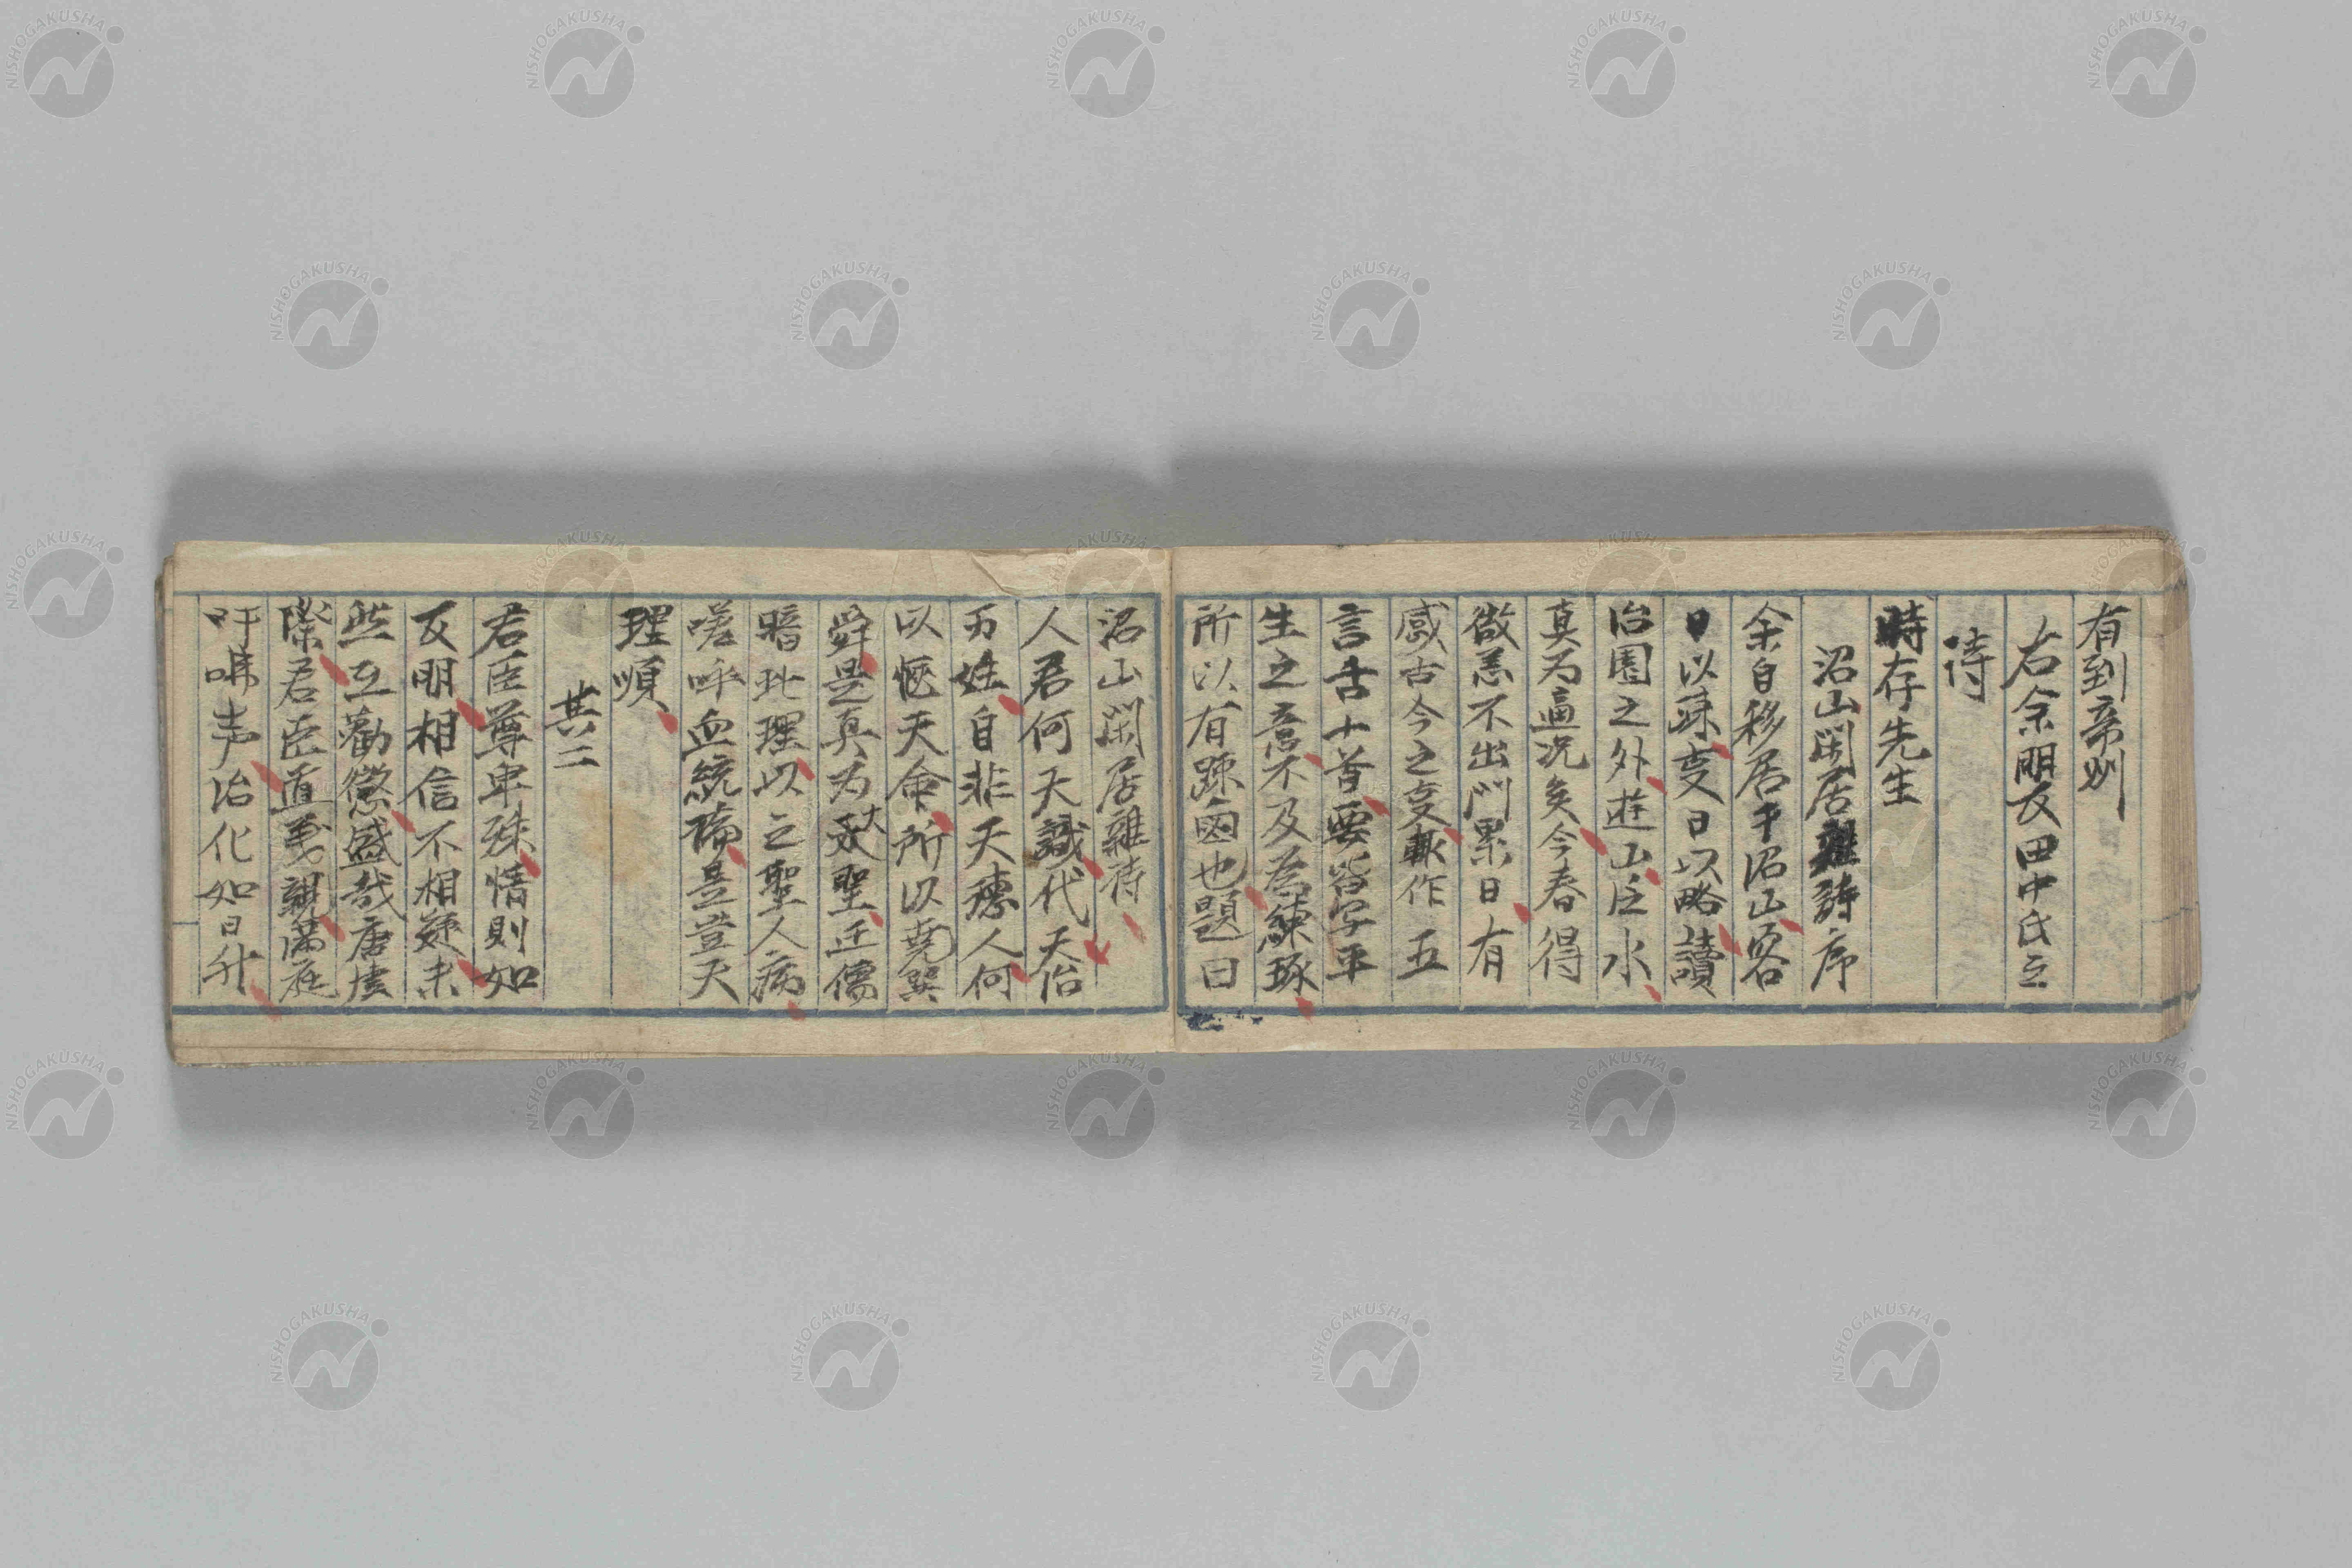 有到帝州
右余朋友田中氏之
詩
時存先生
沼山閑居雜詩序
余自移居于沼山客
日以疎交日以略讀
治園之外遊山泛水
真為逼況矣今春得
微恙不出門累日有
感古今之変輒作五
言古十首要皆写平
生之意不及為練琢
所以有踈鹵也題曰
沼山閑居雜詩
人君何天識代天治
万姓自非天德人何
以愜天命所以堯巽
舜是真為大聖迂儒
暗此理以之聖人病
嗟呼血統論是豈天
理順
其二
君臣尊卑殊情則如
友朋相信不相疑未
些互勸懲盛哉唐虞
際君臣道義親満庭
吁咈声治化如日升
NISHOGAKUSHA